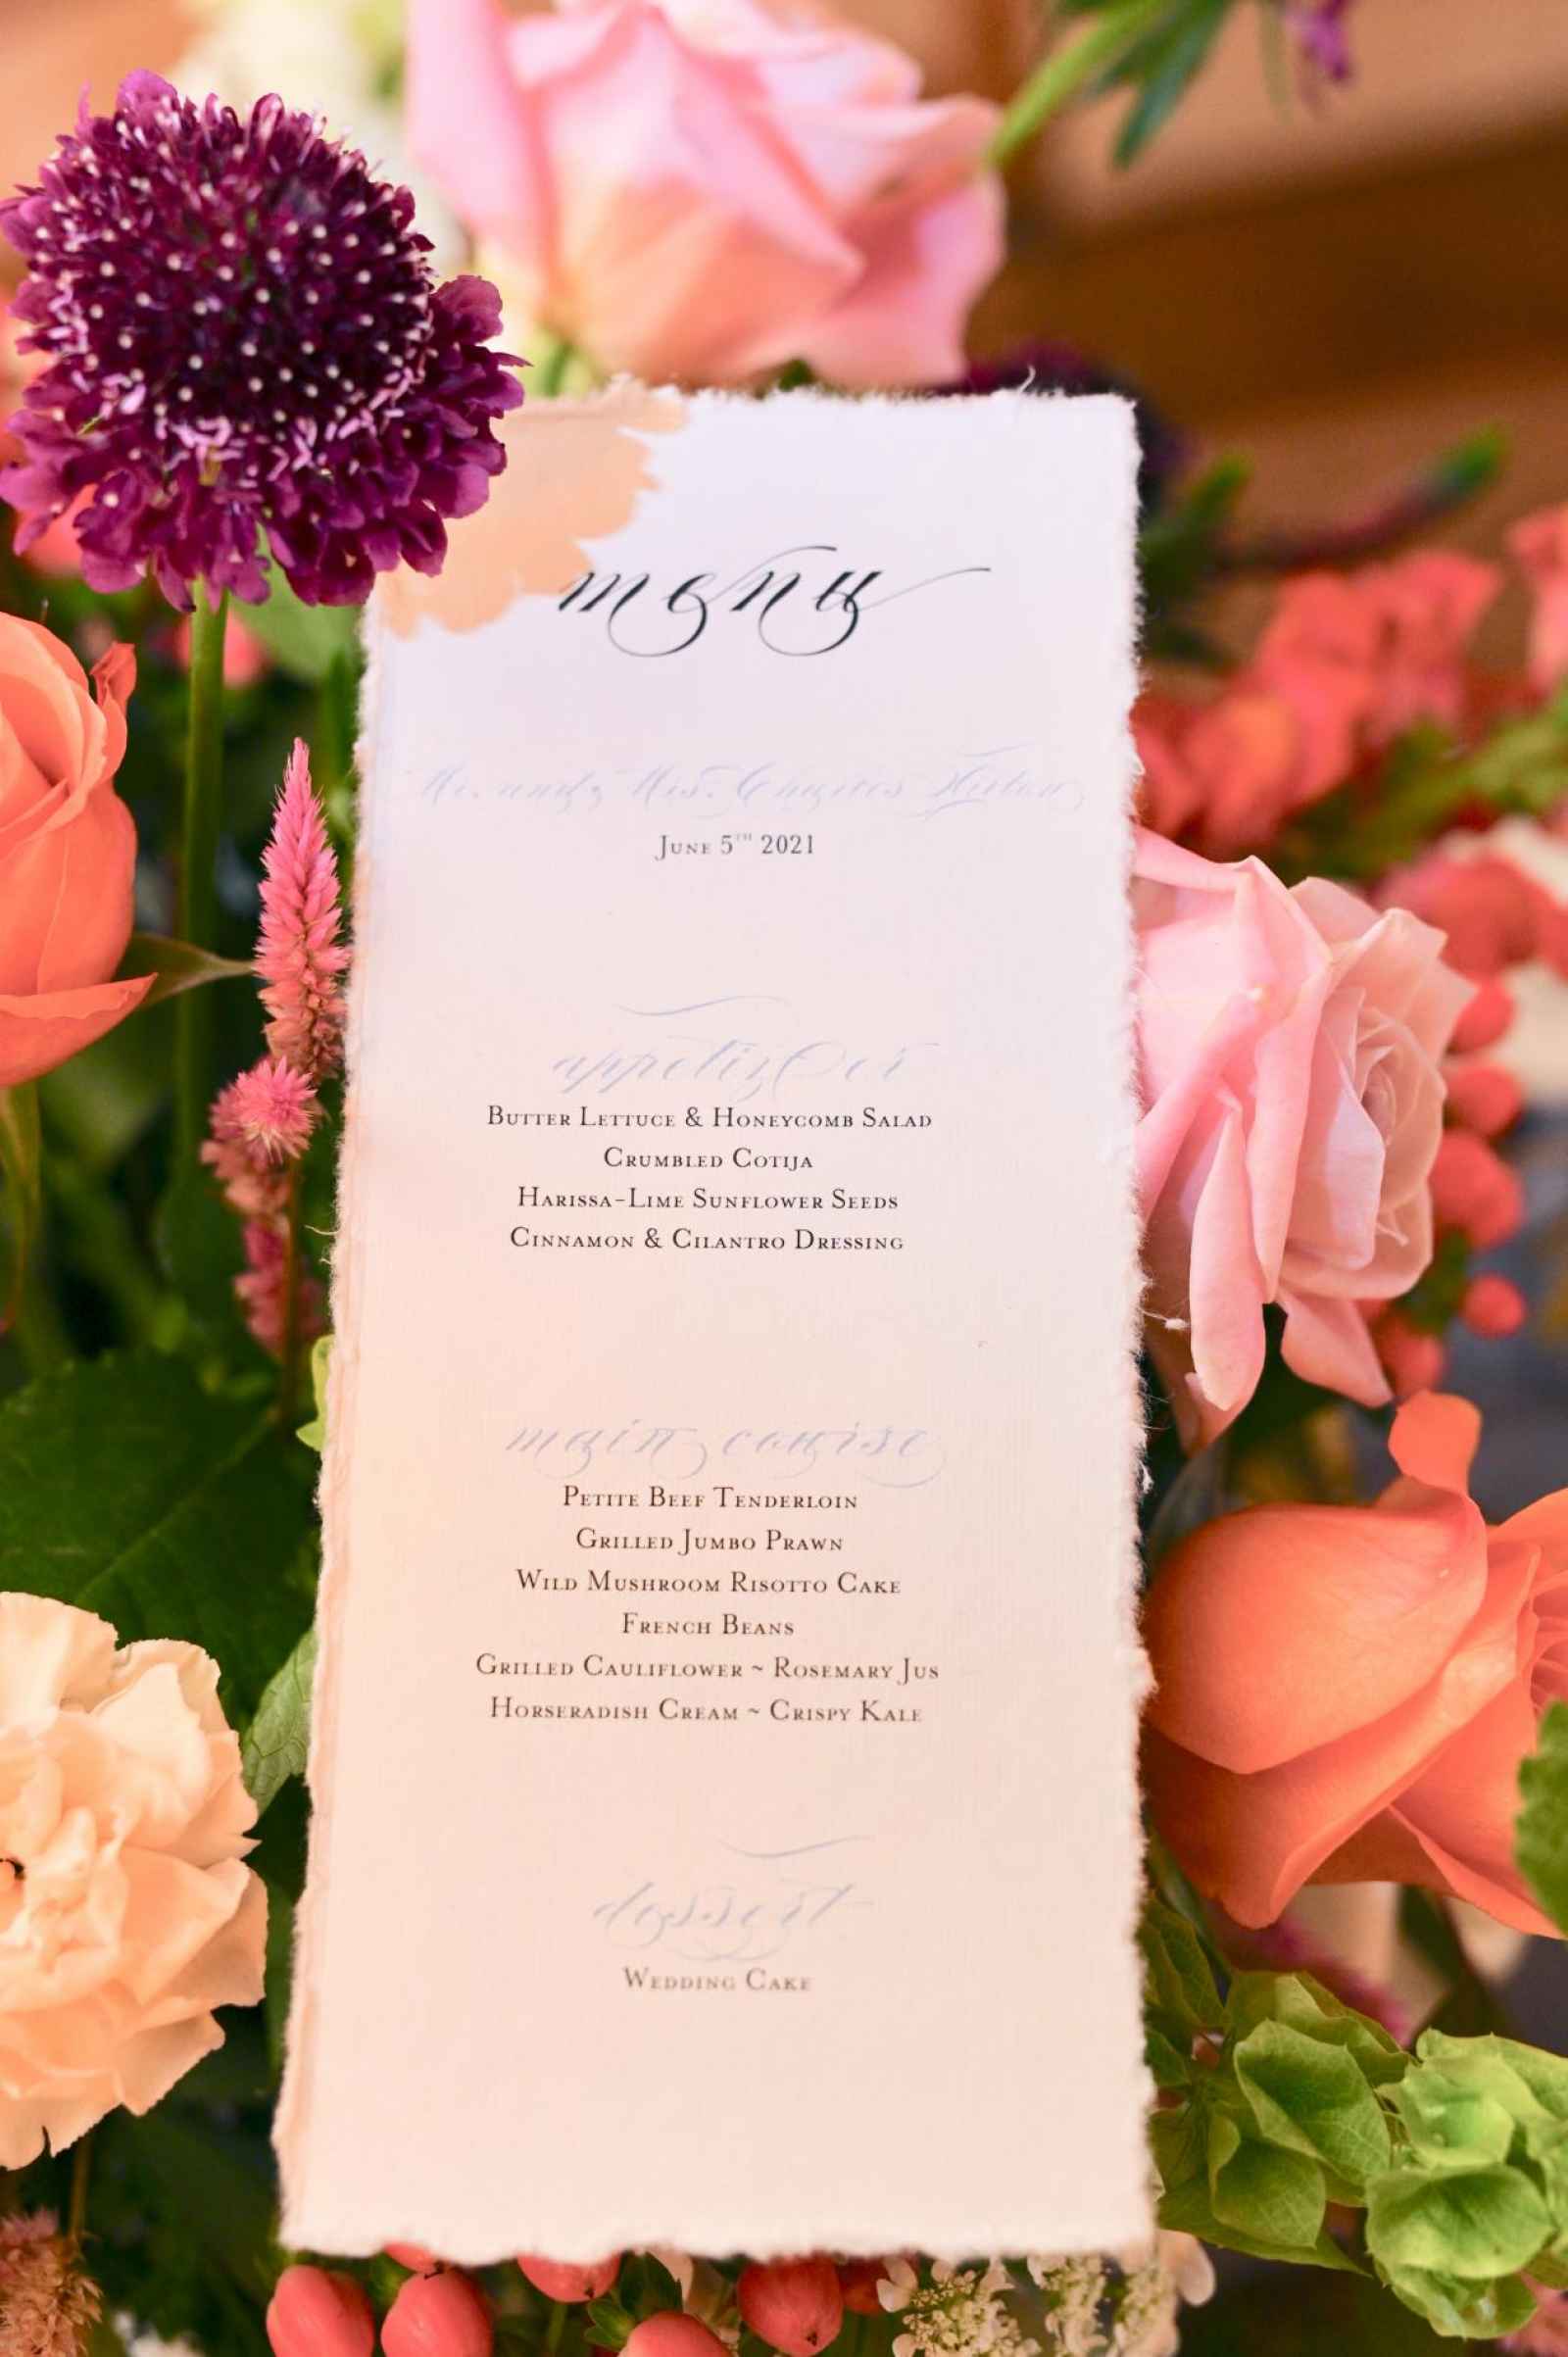 menu
Mr. and Mrs. Charles
June 5th 2021
appetizer
Butter Lettuce & Honeycomb Salad
Crumbled Cotija
Harissa-Lime Sunflower Seeds
Cinnamon & Cilantro Dressing
main course
Petite Beef Tenderloin
Grilled Jumbo Prawn
Wild Mushroom Risotto Cake
French Beans
Grilled Cauliflower ~ Rosemary Jus
Horseradish Cream ~ Crispy Kale
dessert
Wedding Cake